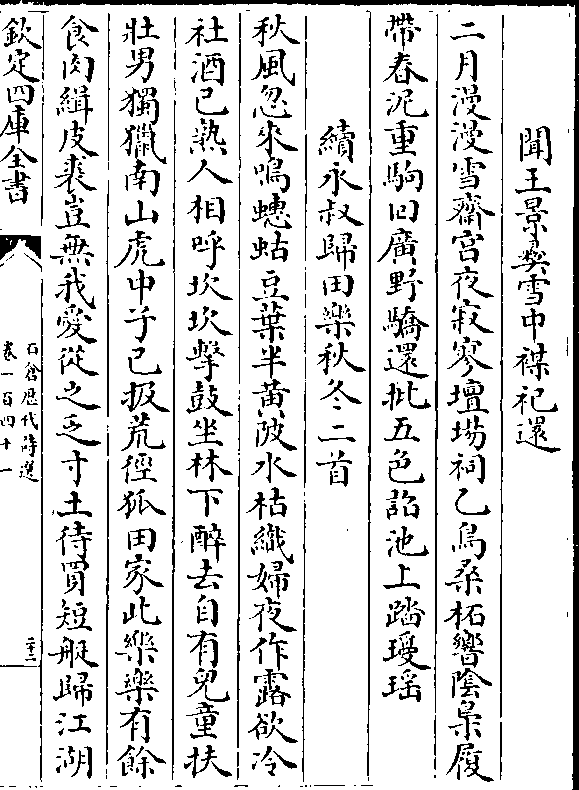 聞王景彝雪中禖祀還
二月漫漫雪齋宮夜寂寥壇場祠乙鳥桑柘響陰梟履
帶春泥重駒囘廣野驕還批五色詔池上踏瓊瑶
續永叔歸田樂秋冬二首
秋風忽來鳴蟪蛄豆葉半黃陂水枯織婦夜作露欲冷
社酒已熟人相呼坎坎擊鼓坐林下醉去自有兒童扶
壯男獨獵南山虎中子已扱荒徑狐田家此樂樂有餘
食肉緝皮裘豈無我愛從之乏寸土待買短艇歸江湖
欽定四庫全書
石倉歷代詩選
卷一百四十一
二十二